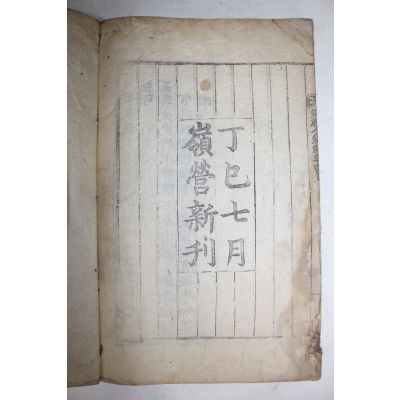 丁巳七月
嶺營新刊